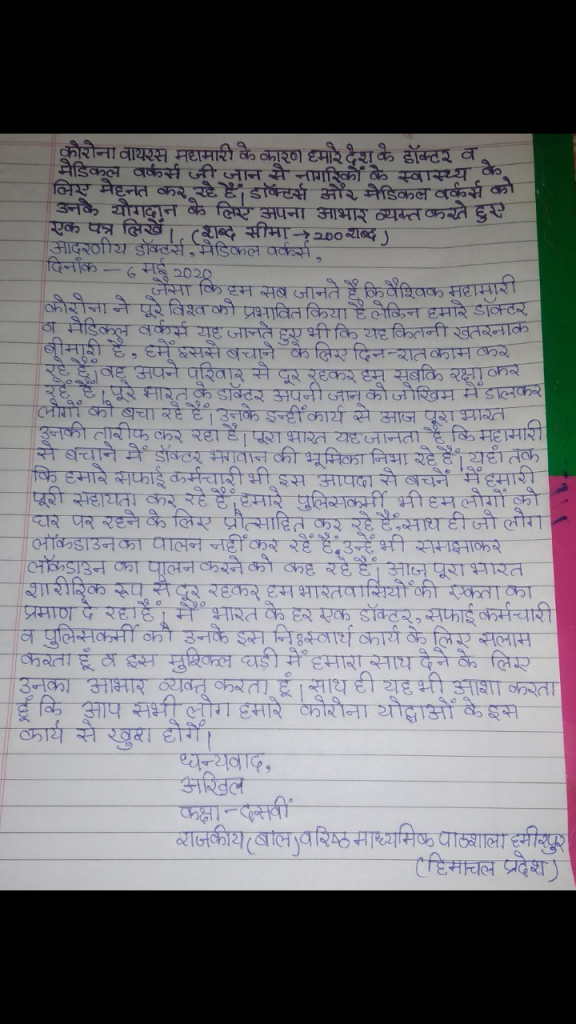 कोरोना वायरस महामारी के कारण हमारे देश के डॉक्टर व
मेडिकल वर्कर्स जी जान से नागरिकों के स्वास्थ्य के
लिए मेहनत कर रहे हैं। डॉक्टर्स और मेडिकल वर्कर्स को
उनके योगदान के लिए अपना आभार व्यक्त करते हुए
एक पत्र लिखें। (शब्द सीमा → 200 शब्द)
आदरणीय डॉक्टर्स, मेडिकल वर्कर्स,
दिनांक – 6 मई 2020
जैसा कि हम सब जानते हैं कि वैश्विक महामारी
कोरोना ने पूरे विश्व को प्रभावित किया है लेकिन हमारे डॉक्टर
व मेडिकल वर्कर्स यह जानते हुए भी कि यह कितनी खतरनाक
बीमारी है, हमें इससे बचाने के लिए दिन-रात काम कर
रहे हैं। वह अपने परिवार से दूर रहकर हम सबकि रक्षा कर
रहें हैं। पूरे भारत के डॉक्टर अपनी जान को जोखिम में डालकर
लोगों को बचा रहे हैं। उनके इन्हीं कार्य से आज पूरा भारत
उनकी तारीफ कर रहा है। पूरा भारत यह जानता है कि महामारी
से बचाने में डॉक्टर भगवान की भूमिका निभा रहे हैं। यहां तक
कि हमारे सफाई कर्मचारी भी इस आपदा से बचने में हमारी
पूरी सहायता कर रहे हैं, हमारे पुलिसकर्मी भी हम लोगों को
घर पर रहने के लिए प्रोत्साहित कर रहे हैं, साथ ही जो लोग
लॉकडाउन का पालन नहीं कर रहें हैं, उन्हें भी समझाकर
लॉकडाउन का पालन करने को कह रहे हैं। आज पूरा भारत
शारीरिक रूप से दूर रहकर हम भारतवासियों की एकता का
प्रमाण दे रहा है। मैं भारत के हर एक डॉक्टर, सफाई कर्मचारी
व पुलिसकर्मी को उनके इस निःस्वार्थ कार्य के लिए सलाम
करता हूं व इस मुश्किल घड़ी में हमारा साथ देने के लिए
उनका आभार व्यक्त करता हूं। साथ ही यह भी आशा करता
हूं कि आप सभी लोग हमारे कोरोना योद्धाओं के इस
कार्य से खुश होगें।
धन्यवाद,
अखिल
कक्षा – दसवीं
राजकीय (बाल) वरिष्ठ माध्यमिक पाठशाला हमीरपुर
(हिमाचल प्रदेश)